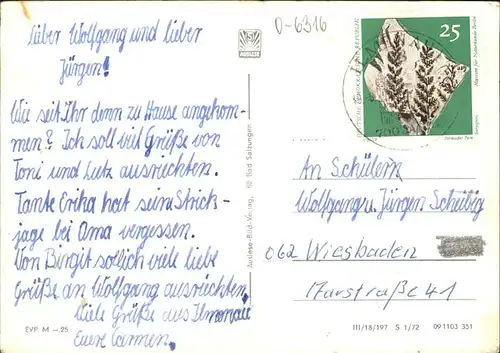 Lieber Wolfgang und lieber
Jürgen!
Wie seit Ihr denn zu Hause angekom-
men? Ich soll viel Grüße von
Toni und Lutz ausriechten.
Tante Erika hat seine Strick-
jage bei Oma vergessen.
Von Birgit soll ich viele liebe
Grüße an Wolfgang ausriechten.
Viele Grüße aus Ilmenau
Eure Carmen.
EVP M -,25
Auslese-Bild-Verlag, 62 Bad Salzungen
0-6316
25
DEUTSCHE DEMOKRATISCHE REPUBLIK
Museum für Naturkunde Berlin
An Schülern
Wolfgang u. Jürgen Scheibig
062 Wiesbaden
Marstraße 41
III/18/197 S 1/72 09 11 03 351